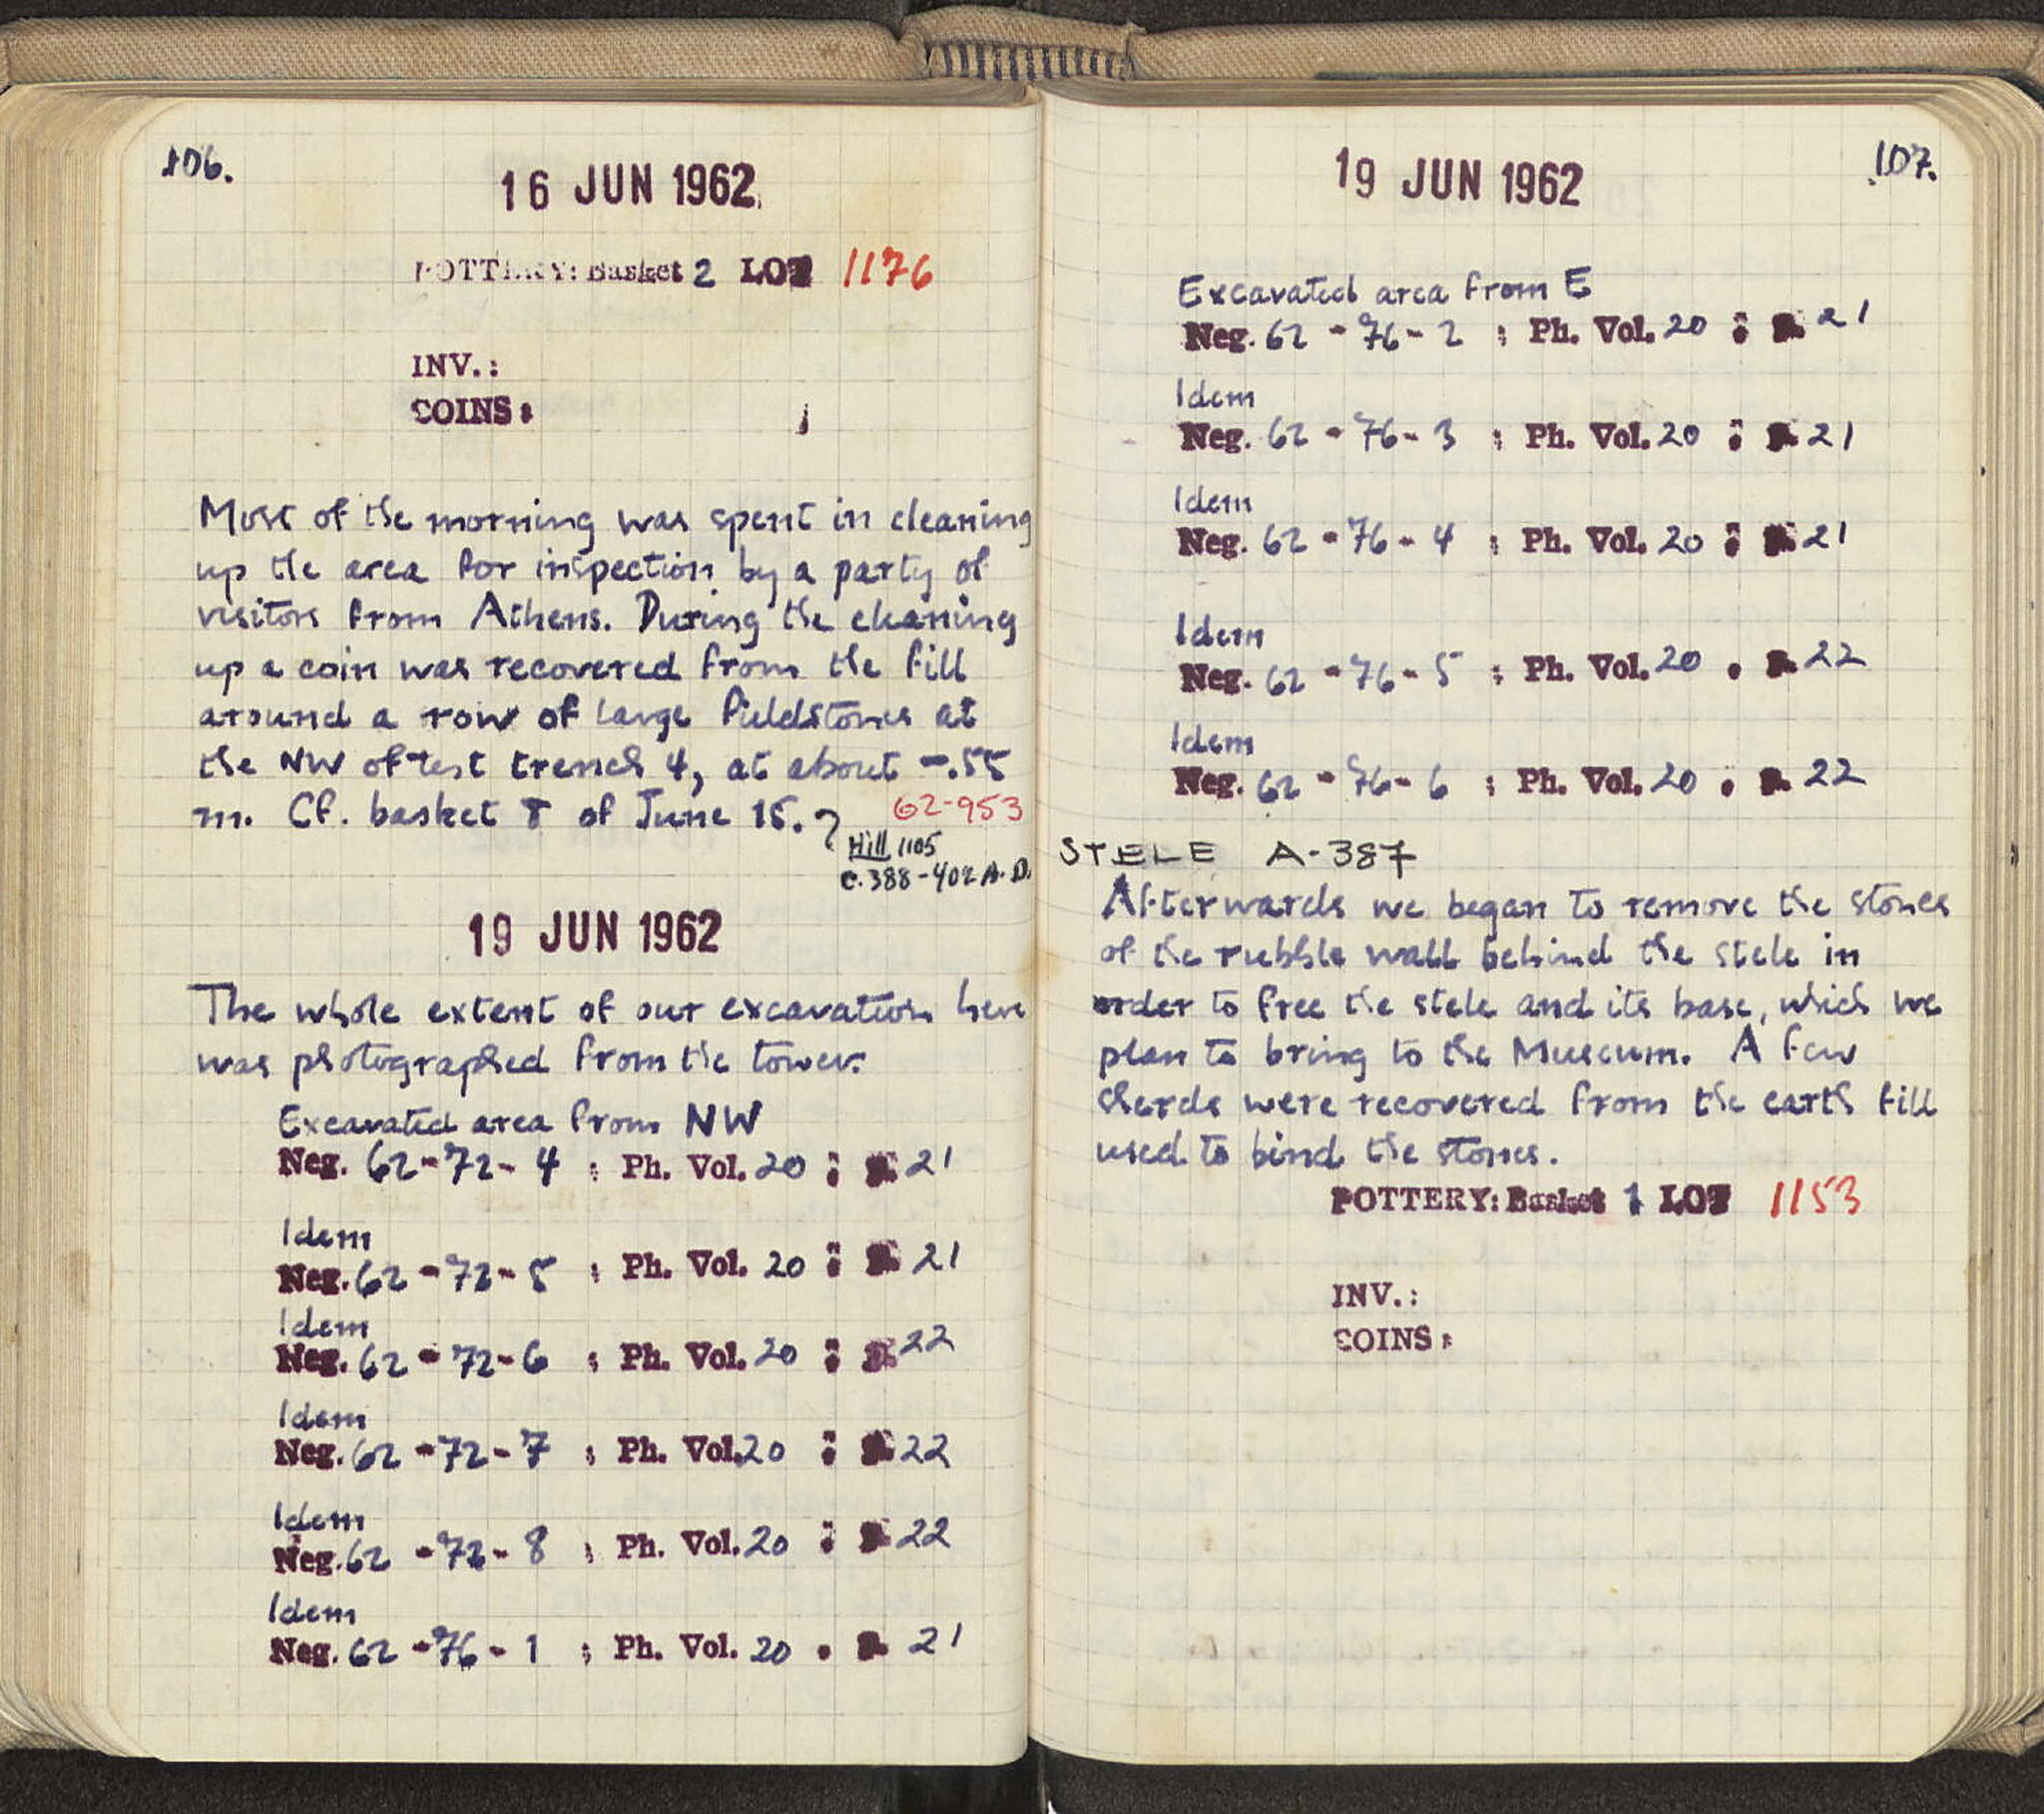 106.
16 JUN 1962
POTTERY: Basket 2 LOT 1176
INV.:
COINS:
Most of the morning was spent in cleaning
up the area for inspection by a party of
visitors from Athens. During the cleaning
up a coin was recovered from the fill
around a row of large fieldstones at
the NW of test trench 4, at about -.55
m. Cf. basket 8 of June 15.
62-953
Hill 1105
c. 388-402 A.D.
19 JUN 1962
The whole extent of our excavation here
was photographed from the tower.
Excavated area from NW
Neg. 62-72-4 ; Ph. Vol. 20 : 21
Idem
Neg. 62-72-5 ; Ph. Vol. 20 : 21
Idem
Neg. 62-72-6 ; Ph. Vol. 20 : 22
Idem
Neg. 62-72-7 ; Ph. Vol. 20 : 22
Idem
Neg. 62-72-8 ; Ph. Vol. 20 : 22
Idem
Neg. 62-76-1 ; Ph. Vol. 20 . 21
107.
19 JUN 1962
Excavated area from E
Neg. 62-76-2 ; Ph. Vol. 20 : 21
Idem
Neg. 62-76-3 ; Ph. Vol. 20 : 21
Idem
Neg. 62-76-4 ; Ph. Vol. 20 : 21
Idem
Neg. 62-76-5 ; Ph. Vol. 20 . 22
Idem
Neg. 62-76-6 ; Ph. Vol. 20 . 22
STELE A-387
Afterwards we began to remove the stones
of the rubble wall behind the stele in
order to free the stele and its base, which we
plan to bring to the Museum. A few
sherds were recovered from the earth fill
used to bind the stones.
POTTERY: Basket 1 LOT 1153
INV.:
COINS: